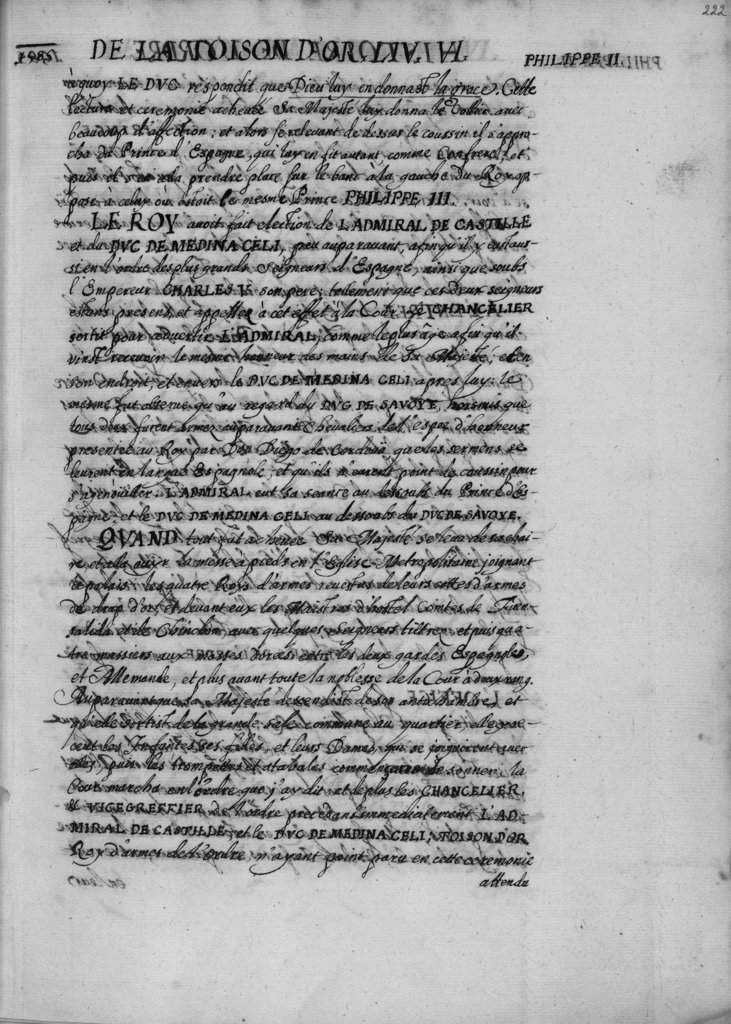 222
1585. DE LA TOISON D'OR. LIV. VI. PHILIPPE II.
à quoy LE DVC respondit que Dieu luy en donnast la grace. Cette
lecture et ceremonie achevée Sa Majesté luy donna le Colier avec
beaucoup d'affection; et alors se relevant de dessus le coussin il s'appro-
cha du Prince d'Espagne, qui luy en fit autant comme Confrere, et
puis il s'en alla prendre place sur le banc à la gauche du Roy op-
posé à celuy où estoit le mesme Prince PHILIPPE III.
LE ROY avoit fait election de L'ADMIRAL DE CASTILLE
et du DVC DE MEDINA CELI, peu auparavant, afin qu'il y eust aus-
si en l'ordre des plus grands Seigneurs d'Espagne, ainsi que soubs
l'Empereur CHARLES V. son pere; tellement que ces deux seigneurs
estans presens, et appellez à cet effet à la Cour, le CHANCELIER
sortit pour advertir L'ADMIRAL, comme le plus âgé afin qu'il
vinst recevoir le mesme honneur des mains de Sa Majesté, et en
son endroit, et envers le DVC DE MEDINA CELI apres luy: le
mesme fut observé qu'au regard du DVC DE SAVOYE, horsmis que
tous deux furent armez auparavant Chevaliers de l'espée d'honneur
presentée au Roy par Don Diego de Cordoua, que les sermens se
leurent en langue Espagnole, et qu'ils n'eurent point de coussin pour
s'agenouiller. L'ADMIRAL eut sa seance au dessoubs du Prince d'Es-
pagne, et le DVC DE MEDINA CELI au dessoubs du DVC DE SAVOYE.
QVAND tout fut achevé Sa Majesté se leva de sa chai-
re, et alla ouir la messe à pied en l'Eglise Metropolitaine joignant
le palais: les quatre Roys d'armes revestus de leurs cottes d'armes
de drap d'or, et devant eux les Maistres d'hostel Comtes de Fuen-
salida et de Chinchon, avec quelques Seigneurs tiltrez, et puis qua-
tre massiers aux masses dorées entre les deux gardes Espagnole,
et Allemande, et plus avant toute la noblesse de la Cour à deux rang.
Auparavant que sa Majesté descendist de son antichambre, et
qu'elle sortist de la grande sale commune au quartier, elle
les Infantes ses filles, et leurs Dames, qui se joignirent avec
elles, puis les trompettes et atabales commencerent de sonner: la
Cour marcha en l'ordre que j'ay dit: et de plus les CHANCELIER,
& VICEGREFFIER de l'ordre precedans immediatement L'AD-
MIRAL DE CASTILLE, et le DVC DE MEDINA CELI; TOISON D'OR
Roy d'armes de l'Ordre, n'ayant point paru en cette ceremonie
attendu